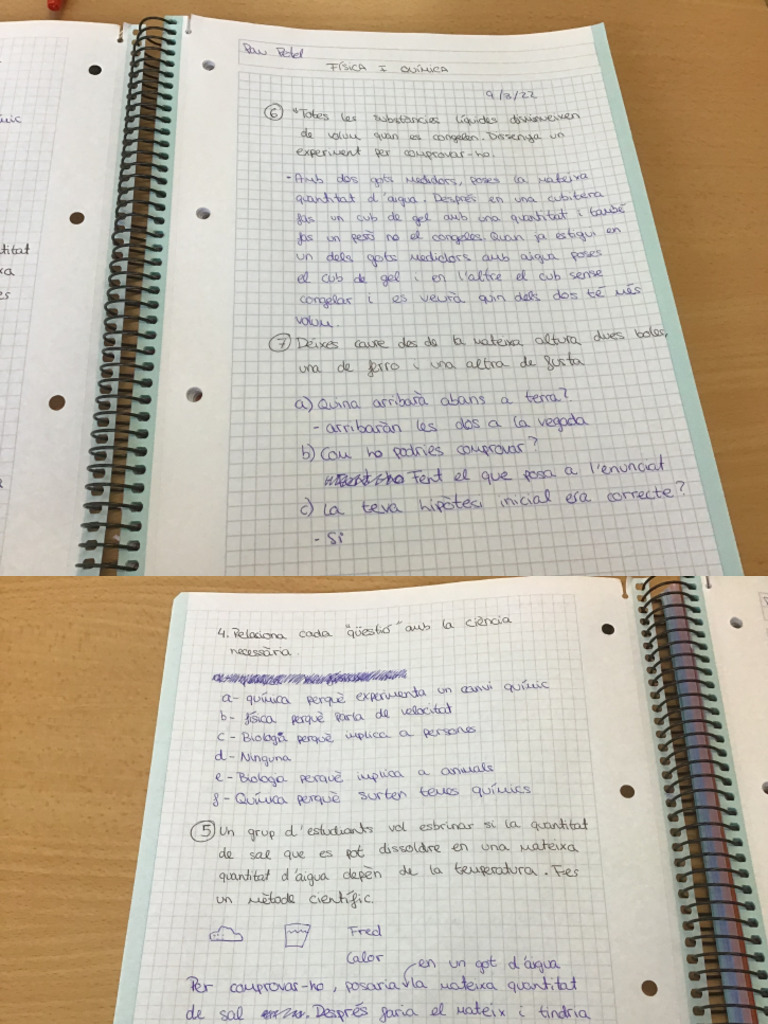 Pau
FÍSICA I QUÍMICA
9/3/22
6 "Totes les substàncies líquides disminueixen
de volum quan es congelen. Dissenya un
experiment per comprovar-ho.
- Amb dos gots medidors, poses la mateixa
quantitat d'aigua. Després en una cubitera
fas un cub de gel amb una quantitat i també
fas un però no el congeles. Quan ja estigui en
un dels gots medidors amb aigua poses
el cub de gel i en l'altre el cub sense
congelar i es veurà quin dels dos té més
volum.
7 Deixes caure des de la mateixa altura dues boles,
una de ferro i una altra de fusta
a) Quina arribarà abans a terra?
- arribaràn les dos a la vegada
b) Com ho podries comprovar?
Fent el que posa a l'enunciat
c) La teva hipòtesi inicial era correcte?
- Si
titat
4. Relaciona cada "qüestió" amb la ciència
necessària.
a - química perquè experimenta un canvi químic
b - física perquè parla de velocitat
c - Biologia perquè implica a persones
d - Ninguna
e - Biologa perquè implica a animals
f - Química perquè surten temes químics
5 Un grup d'estudiants vol esbrinar si la quantitat
de sal que es pot dissoldre en una mateixa
quantitat d'aigua depèn de la temperatura. Fes
un mètode científic.
Fred
Calor
en un got d'aigua
Per comprovar-ho, posaria la mateixa quantitat
de sal . Després faria el mateix i tindria